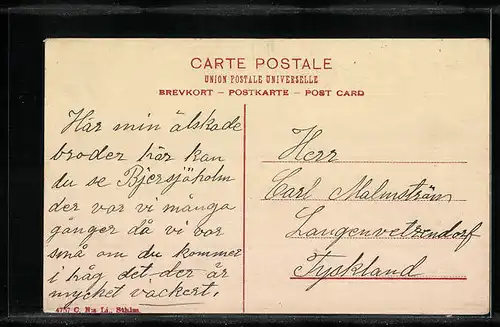 CARTE POSTALE
UNION POSTALE UNIVERSELLE
BREVKORT – POSTKARTE – POST CARD
Här min älskade
broder här kan
du se Bjersjöholm
der var vi många
gånger då vi var
små om du kommer
i håg det der är
mycket vackert.
Herr
Carl Malmström
Langenwetzendorf
Tyskland
4757 C. N:s Lj., Sthlm